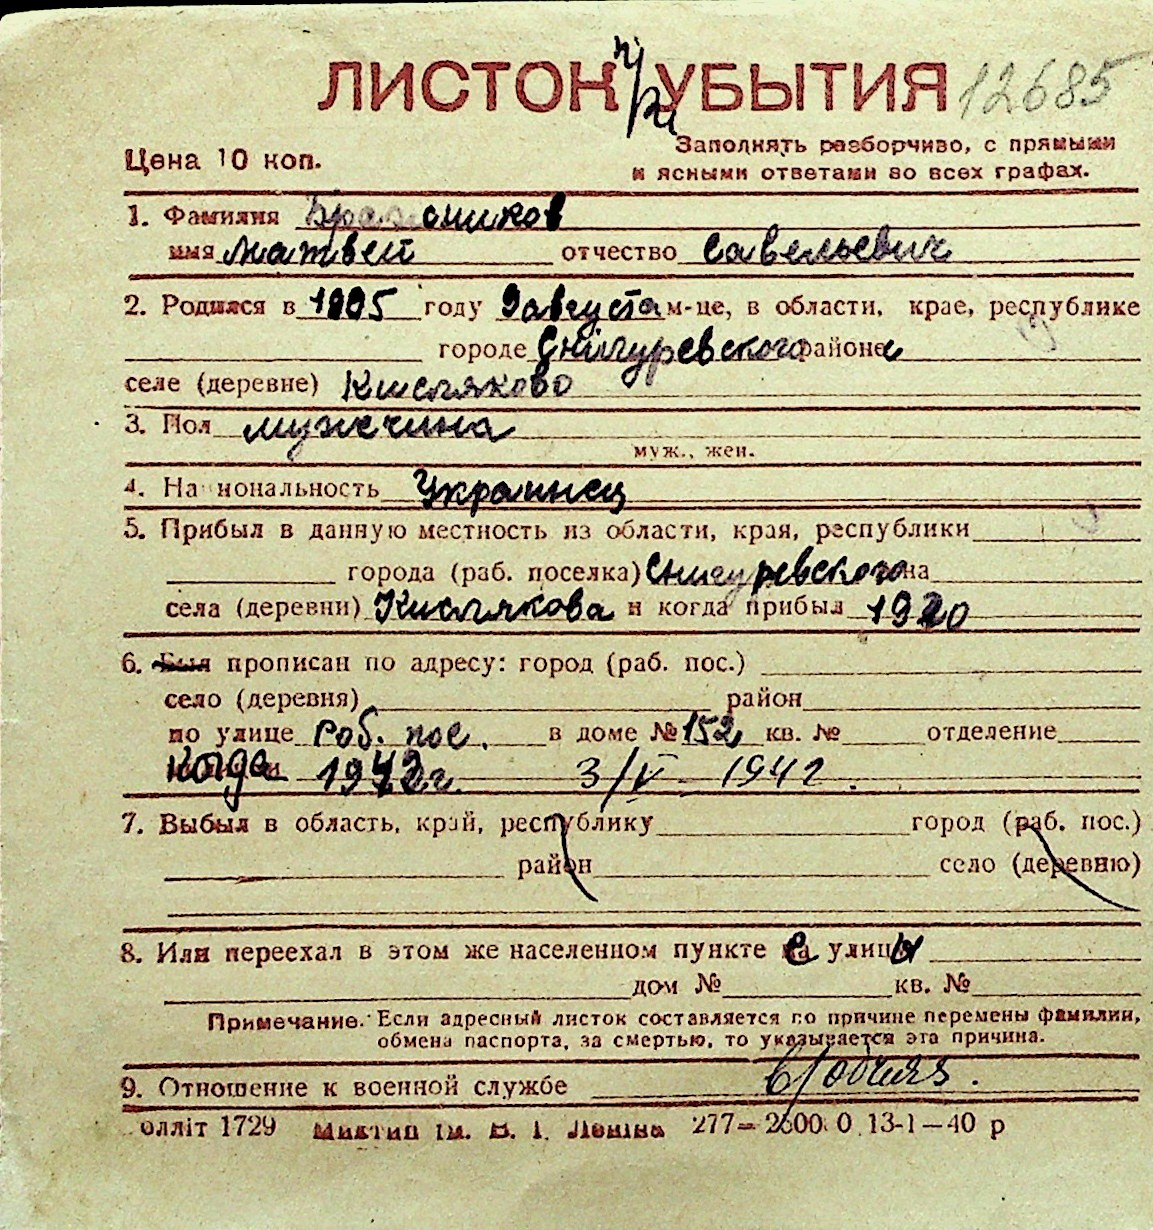 ЛИСТОК УБЫТИЯ 12685
Цена 10 коп.
Заполнять разборчиво, с прямыми
и ясными ответами во всех графах.
1. Фамилия Бражников
имя Матвей отчество Савельевич
2. Родился в 1905 году 9 августа м-це, в области, крае, республике
городе Снигуревского районе
селе (деревне) Кисляково
3. Пол мужчина
муж., жен.
4. Национальность Украинец
5. Прибыл в данную местность из области, края, республики
города (раб. поселка) Снигуревского на
села (деревни) Кислякова и когда прибыл 1920
6. Был прописан по адресу: город (раб. пос.)
село (деревня) район
по улице Раб. пос. в доме № 152 кв. № отделение
когда 1942 г. 3/V - 1942.
7. Выбыл в область, край, республику город (раб. пос.)
район село (деревню)
8. Или переехал в этом же населенном пункте с улицы
дом № кв. №
Примечание. Если адресный листок составляется по причине перемены фамилии,
обмена паспорта, за смертью, то указывается эта причина.
9. Отношение к военной службе в/обязя.
олліт 1729 ім. В. І. Леніна 277—2600 0 13-1—40 р